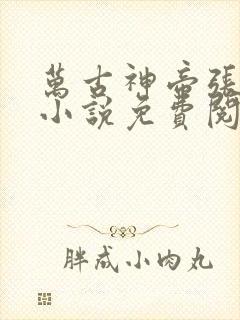 萬古神帝張
小說免費閱
胖成小肉丸